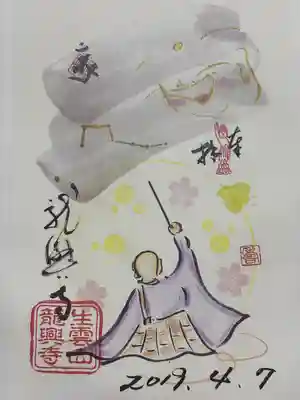 奉
拝
龍興寺
生雲山
龍興寺
2019.4.7